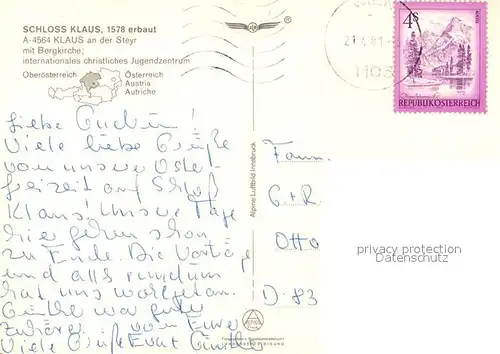 SCHLOSS KLAUS, 1578 erbaut
A-4564 KLAUS an der Steyr
mit Bergkirche;
internationales christliches Jugendzentrum
Oberösterreich
Österreich
Austria
Autriche
4S
REPUBLIK ÖSTERREICH
Liebe
Viele liebe Grüße
von unsere Oster-
freizeit auf Schloß
Klaus! Unsere Tage
hier gehen schon
zu Ende. Die Vorträge
und alles rundum
hat uns wohlgetan.
war guter
Zuhörer. von Eurer
Viele Grüße Eure Günther
Alpine Luftbild Innsbruck
Fam.
G. + R.
Otto
D-83
privacy protection
Datenschutz